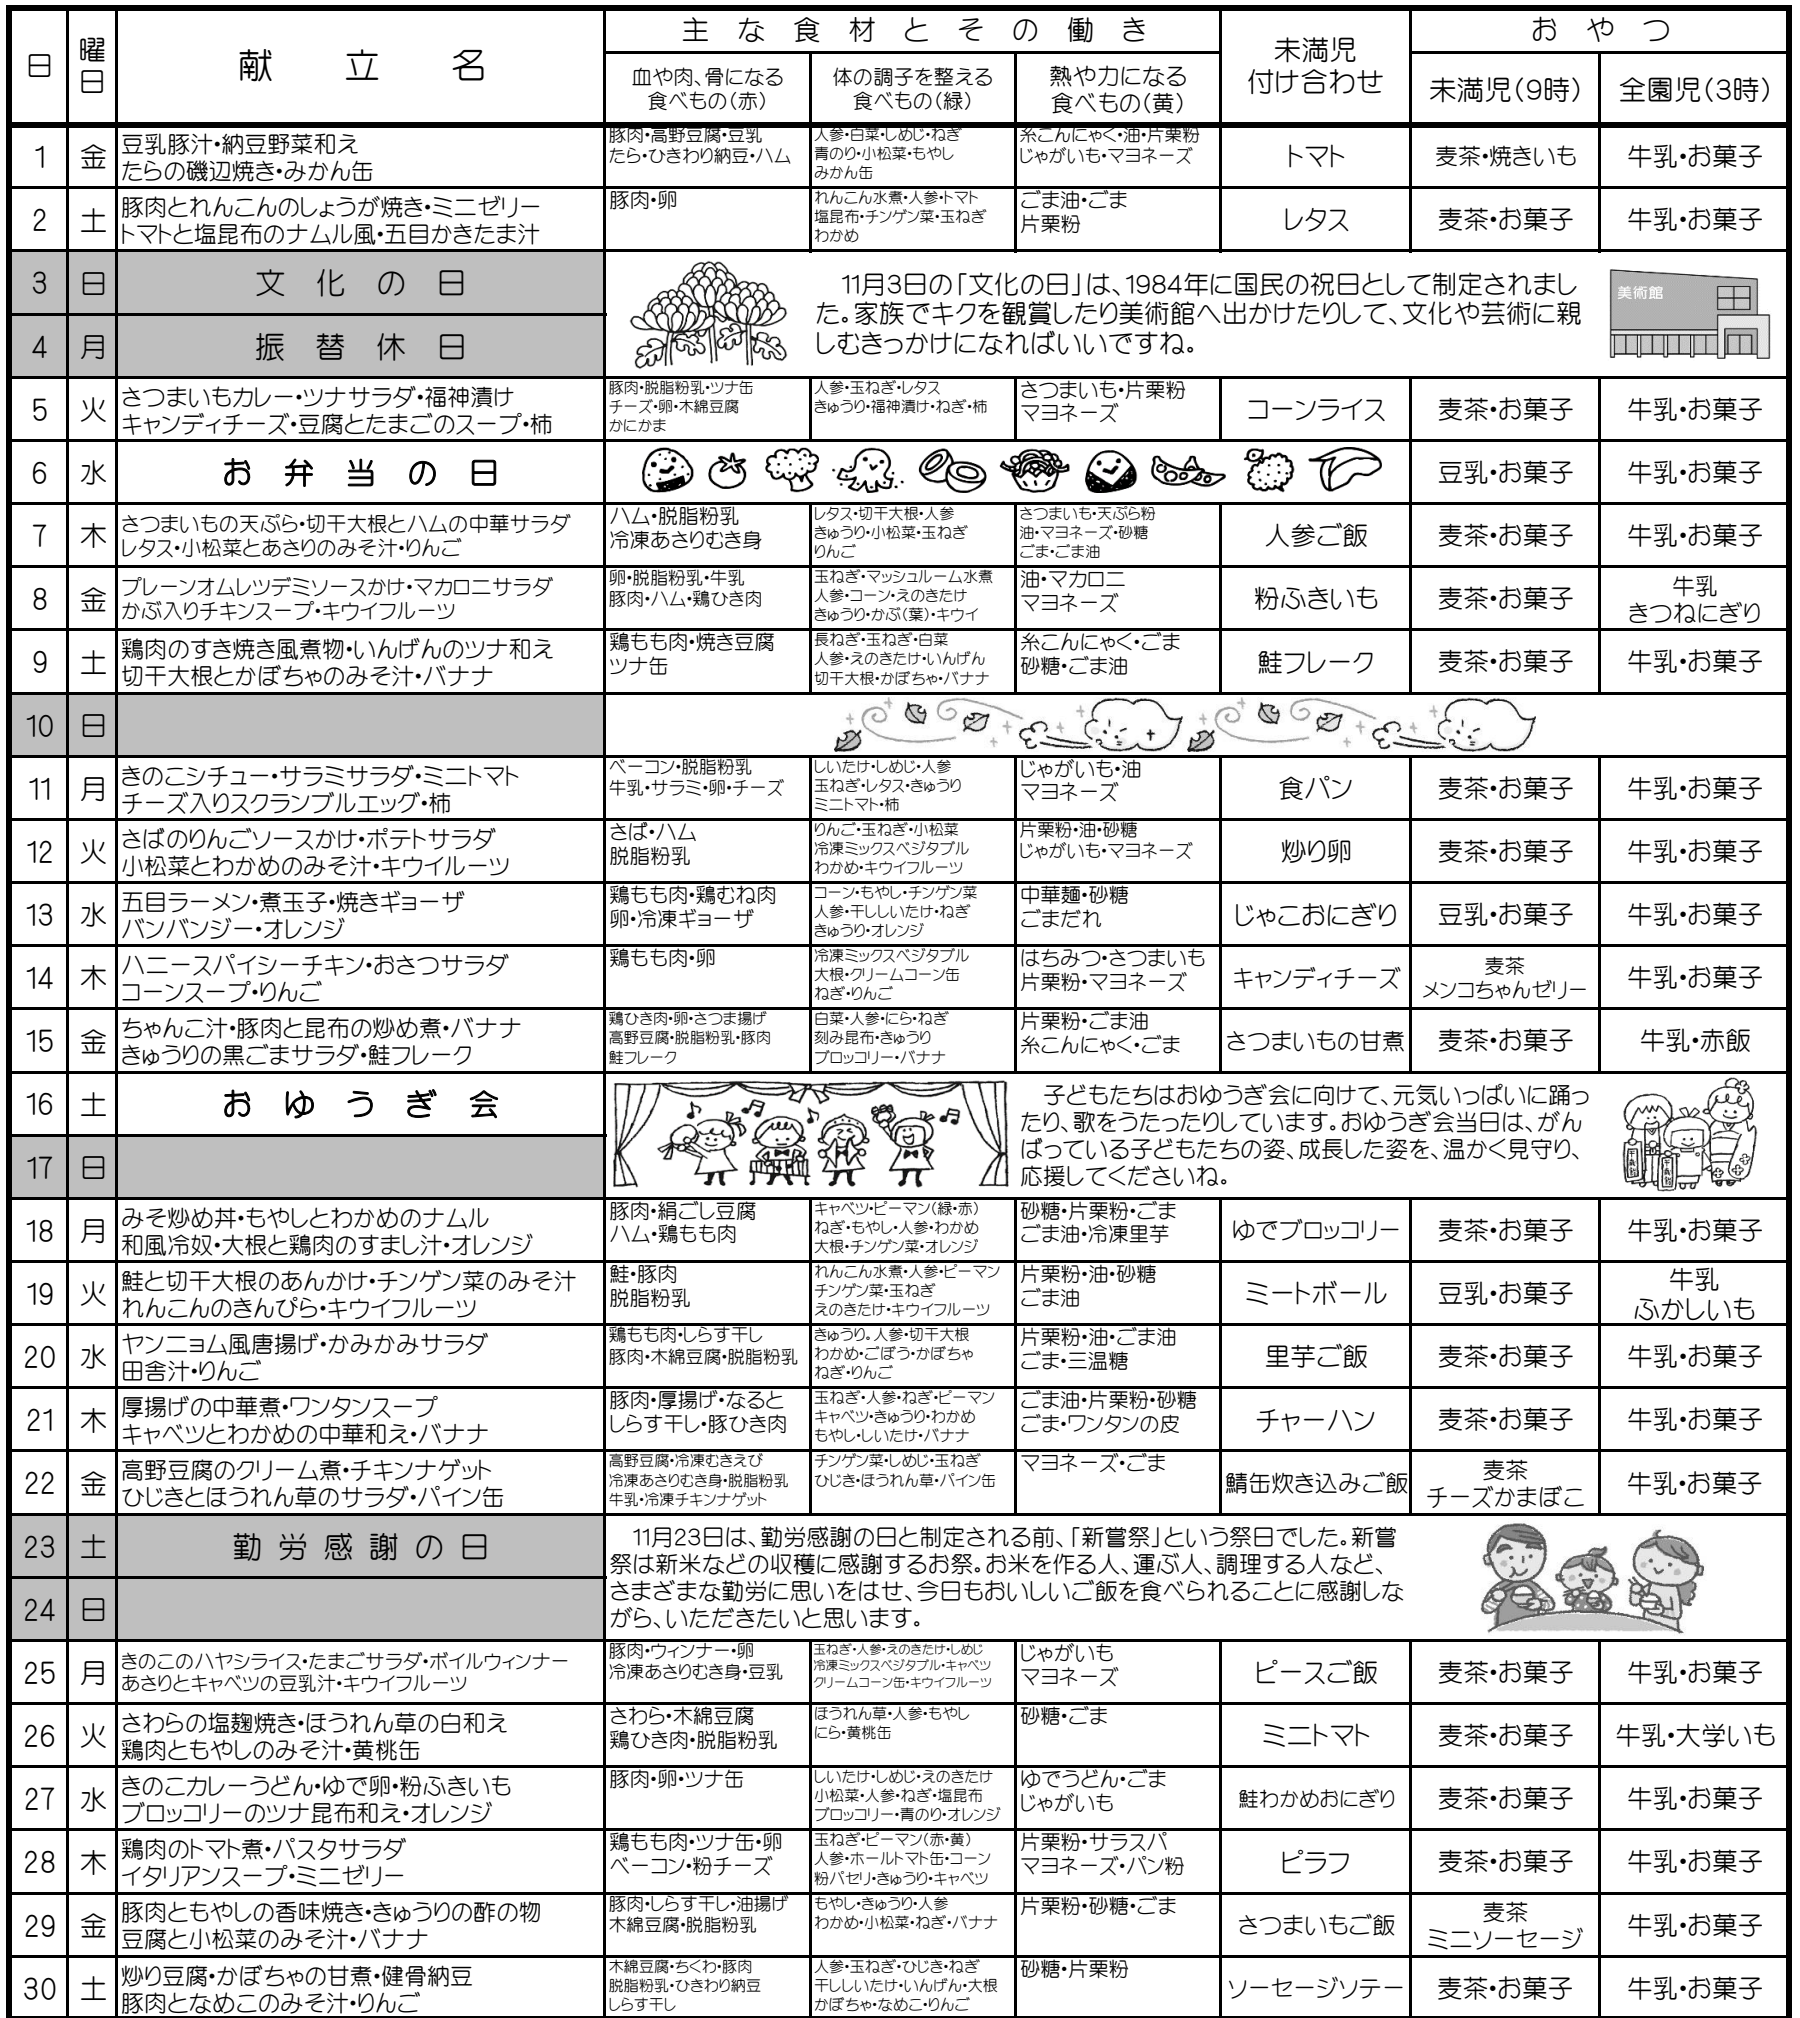 日 曜日 献立名 主な食材とその働き 未満児付け合わせ おやつ
血や肉、骨になる食べもの(赤) 体の調子を整える食べもの(緑) 熱や力になる食べもの(黄) 未満児(9時) 全園児(3時)
1 金
豆乳豚汁・納豆野菜和え
たらの磯辺焼き・みかん缶
豚肉・高野豆腐・豆乳
たら・ひきわり納豆・ハム
人参・白菜・しめじ・ねぎ
青のり・小松菜・もやし
みかん缶
糸こんにゃく・油・片栗粉
じゃがいも・マヨネーズ
トマト
麦茶・焼きいも
牛乳・お菓子
2 土
豚肉とれんこんのしょうが焼き・ミニゼリー
トマトと塩昆布のナムル風・五目かきたま汁
豚肉・卵
れんこん水煮・人参・トマト
塩昆布・チンゲン菜・玉ねぎ
わかめ
ごま油・ごま
片栗粉
レタス
麦茶・お菓子
牛乳・お菓子
3 日 文化の日
4 月 振替休日
11月3日の「文化の日」は、1984年に国民の祝日として制定されまし
た。家族でキクを観賞したり美術館へ出かけたりして、文化や芸術に親
しむきっかけになればいいですね。
美術館
5 火
さつまいもカレー・ツナサラダ・福神漬け
キャンディチーズ・豆腐とたまごのスープ・柿
豚肉・脱脂粉乳・ツナ缶
チーズ・卵・木綿豆腐
かにかま
人参・玉ねぎ・レタス
きゅうり・福神漬け・ねぎ・柿
さつまいも・片栗粉
マヨネーズ
コーンライス
麦茶・お菓子
牛乳・お菓子
6 水 お弁当の日
豆乳・お菓子
牛乳・お菓子
7 木
さつまいもの天ぷら・切干大根とハムの中華サラダ
レタス・小松菜とあさりのみそ汁・りんご
ハム・脱脂粉乳
冷凍あさりむき身
レタス・切干大根・人参
きゅうり・小松菜・玉ねぎ
りんご
さつまいも・天ぷら粉
油・マヨネーズ・砂糖
ごま・ごま油
人参ご飯
麦茶・お菓子
牛乳・お菓子
8 金
プレーンオムレツデミソースかけ・マカロニサラダ
かぶ入りチキンスープ・キウイフルーツ
卵・脱脂粉乳・牛乳
豚肉・ハム・鶏ひき肉
玉ねぎ・マッシュルーム水煮
人参・コーン・えのきたけ
きゅうり・かぶ(葉)・キウイ
油・マカロニ
マヨネーズ
粉ふきいも
麦茶・お菓子
牛乳
きつねにぎり
9 土
鶏肉のすき焼き風煮物・いんげんのツナ和え
切干大根とかぼちゃのみそ汁・バナナ
鶏もも肉・焼き豆腐
ツナ缶
長ねぎ・玉ねぎ・白菜
人参・えのきたけ・いんげん
切干大根・かぼちゃ・バナナ
糸こんにゃく・ごま
砂糖・ごま油
鮭フレーク
麦茶・お菓子
牛乳・お菓子
10 日
11 月
きのこシチュー・サラミサラダ・ミニトマト
チーズ入りスクランブルエッグ・柿
ベーコン・脱脂粉乳
牛乳・サラミ・卵・チーズ
しいたけ・しめじ・人参
玉ねぎ・レタス・きゅうり
ミニトマト・柿
じゃがいも・油
マヨネーズ
食パン
麦茶・お菓子
牛乳・お菓子
12 火
さばのりんごソースかけ・ポテトサラダ
小松菜とわかめのみそ汁・キウイルーツ
さば・ハム
脱脂粉乳
りんご・玉ねぎ・小松菜
冷凍ミックスベジタブル
わかめ・キウイフルーツ
片栗粉・油・砂糖
じゃがいも・マヨネーズ
炒り卵
麦茶・お菓子
牛乳・お菓子
13 水
五目ラーメン・煮玉子・焼きギョーザ
バンバンジー・オレンジ
鶏もも肉・鶏むね肉
卵・冷凍ギョーザ
コーン・もやし・チンゲン菜
人参・干ししいたけ・ねぎ
きゅうり・オレンジ
中華麺・砂糖
ごまだれ
じゃこおにぎり
豆乳・お菓子
牛乳・お菓子
14 木
ハニースパイシーチキン・おさつサラダ
コーンスープ・りんご
鶏もも肉・卵
冷凍ミックスベジタブル
大根・クリームコーン缶
ねぎ・りんご
はちみつ・さつまいも
片栗粉・マヨネーズ
キャンディチーズ
麦茶
メンコちゃんゼリー
牛乳・お菓子
15 金
ちゃんこ汁・豚肉と昆布の炒め煮・バナナ
きゅうりの黒ごまサラダ・鮭フレーク
鶏ひき肉・卵・さつま揚げ
高野豆腐・脱脂粉乳・豚肉
鮭フレーク
白菜・人参・にら・ねぎ
刻み昆布・きゅうり
ブロッコリー・バナナ
片栗粉・ごま油
糸こんにゃく・ごま
さつまいもの甘煮
麦茶・お菓子
牛乳・赤飯
16 土 おゆうぎ会
17 日
子どもたちはおゆうぎ会に向けて、元気いっぱいに踊っ
たり、歌をうたったりしています。おゆうぎ会当日は、がん
ばっている子どもたちの姿、成長した姿を、温かく見守り、
応援してくださいね。
18 月
みそ炒め丼・もやしとわかめのナムル
和風冷奴・大根と鶏肉のすまし汁・オレンジ
豚肉・絹ごし豆腐
ハム・鶏もも肉
キャベツ・ピーマン(緑・赤)
ねぎ・もやし・人参・わかめ
大根・チンゲン菜・オレンジ
砂糖・片栗粉・ごま
ごま油・冷凍里芋
ゆでブロッコリー
麦茶・お菓子
牛乳・お菓子
19 火
鮭と切干大根のあんかけ・チンゲン菜のみそ汁
れんこんのきんぴら・キウイフルーツ
鮭・豚肉
脱脂粉乳
れんこん水煮・人参・ピーマン
チンゲン菜・玉ねぎ
えのきたけ・キウイフルーツ
片栗粉・油・砂糖
ごま油
ミートボール
豆乳・お菓子
牛乳
ふかしいも
20 水
ヤンニョム風唐揚げ・かみかみサラダ
田舎汁・りんご
鶏もも肉・しらす干し
豚肉・木綿豆腐・脱脂粉乳
きゅうり。人参・切干大根
わかめ・ごぼう・かぼちゃ
ねぎ・りんご
片栗粉・油・ごま油
ごま・三温糖
里芋ご飯
麦茶・お菓子
牛乳・お菓子
21 木
厚揚げの中華煮・ワンタンスープ
キャベツとわかめの中華和え・バナナ
豚肉・厚揚げ・なると
しらす干し・豚ひき肉
玉ねぎ・人参・ねぎ・ピーマン
キャベツ・きゅうり・わかめ
もやし・しいたけ・バナナ
ごま油・片栗粉・砂糖
ごま・ワンタンの皮
チャーハン
麦茶・お菓子
牛乳・お菓子
22 金
高野豆腐のクリーム煮・チキンナゲット
ひじきとほうれん草のサラダ・パイン缶
高野豆腐・冷凍むきえび
冷凍あさりむき身・脱脂粉乳
牛乳・冷凍チキンナゲット
チンゲン菜・しめじ・玉ねぎ
ひじき・ほうれん草・パイン缶
マヨネーズ・ごま
鯖缶炊き込みご飯
麦茶
チーズかまぼこ
牛乳・お菓子
23 土 勤労感謝の日
24 日
11月23日は、勤労感謝の日と制定される前、「新嘗祭」という祭日でした。新嘗
祭は新米などの収穫に感謝するお祭。お米を作る人、運ぶ人、調理する人など、
さまざまな勤労に思いをはせ、今日もおいしいご飯を食べられることに感謝しな
がら、いただきたいと思います。
25 月
きのこのハヤシライス・たまごサラダ・ボイルウィンナー
あさりとキャベツの豆乳汁・キウイフルーツ
豚肉・ウィンナー・卵
冷凍あさりむき身・豆乳
玉ねぎ・人参・えのきたけ・しめじ
冷凍ミックスベジタブル・キャベツ
クリームコーン缶・キウイフルーツ
じゃがいも
マヨネーズ
ピースご飯
麦茶・お菓子
牛乳・お菓子
26 火
さわらの塩麹焼き・ほうれん草の白和え
鶏肉ともやしのみそ汁・黄桃缶
さわら・木綿豆腐
鶏ひき肉・脱脂粉乳
ほうれん草・人参・もやし
にら・黄桃缶
砂糖・ごま
ミニトマト
麦茶・お菓子
牛乳・大学いも
27 水
きのこカレーうどん・ゆで卵・粉ふきいも
ブロッコリーのツナ昆布和え・オレンジ
豚肉・卵・ツナ缶
しいたけ・しめじ・えのきたけ
小松菜・人参・ねぎ・塩昆布
ブロッコリー・青のり・オレンジ
ゆでうどん・ごま
じゃがいも
鮭わかめおにぎり
麦茶・お菓子
牛乳・お菓子
28 木
鶏肉のトマト煮・パスタサラダ
イタリアンスープ・ミニゼリー
鶏もも肉・ツナ缶・卵
ベーコン・粉チーズ
玉ねぎ・ピーマン(赤・黄)
人参・ホールトマト缶・コーン
粉パセリ・きゅうり・キャベツ
片栗粉・サラスパ
マヨネーズ・パン粉
ピラフ
麦茶・お菓子
牛乳・お菓子
29 金
豚肉ともやしの香味焼き・きゅうりの酢の物
豆腐と小松菜のみそ汁・バナナ
豚肉・しらす干し・油揚げ
木綿豆腐・脱脂粉乳
もやし・きゅうり・人参
わかめ・小松菜・ねぎ・バナナ
片栗粉・砂糖・ごま
さつまいもご飯
麦茶
ミニソーセージ
牛乳・お菓子
30 土
炒り豆腐・かぼちゃの甘煮・健骨納豆
豚肉となめこのみそ汁・りんご
木綿豆腐・ちくわ・豚肉
脱脂粉乳・ひきわり納豆
しらす干し
人参・玉ねぎ・ひじき・ねぎ
干ししいたけ・いんげん・大根
かぼちゃ・なめこ・りんご
砂糖・片栗粉
ソーセージソテー
麦茶・お菓子
牛乳・お菓子